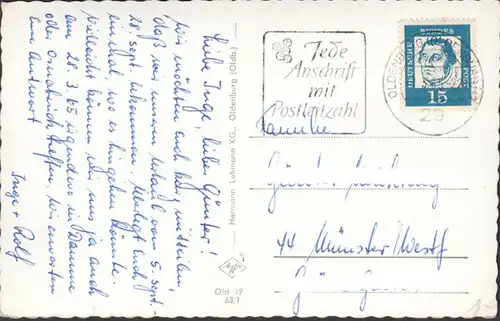 Liebe Inge, lieber Günter!
Wir möchten euch kurz mitteilen,
daß wir unseren Urlaub vom 5. Sept.-
28. Sept. bekommen. Überlegt euch
einmal, wo es hingehen könnte.
Vielleicht können wir uns ja auch
am 28.3.65 irgendwo in Damme
oder Osnabrück treffen. Wir erwarten
eure Antwort
Inge + Rolf
Hermann Lohmann KG., Oldenburg (Oldb.)
Old 19
63/1
Jede
Anschrift
mit
Postleitzahl
OLDENBURG
29
DEUTSCHE
BUNDES
POST
15
Familie
Günter
44 Münster/Westf